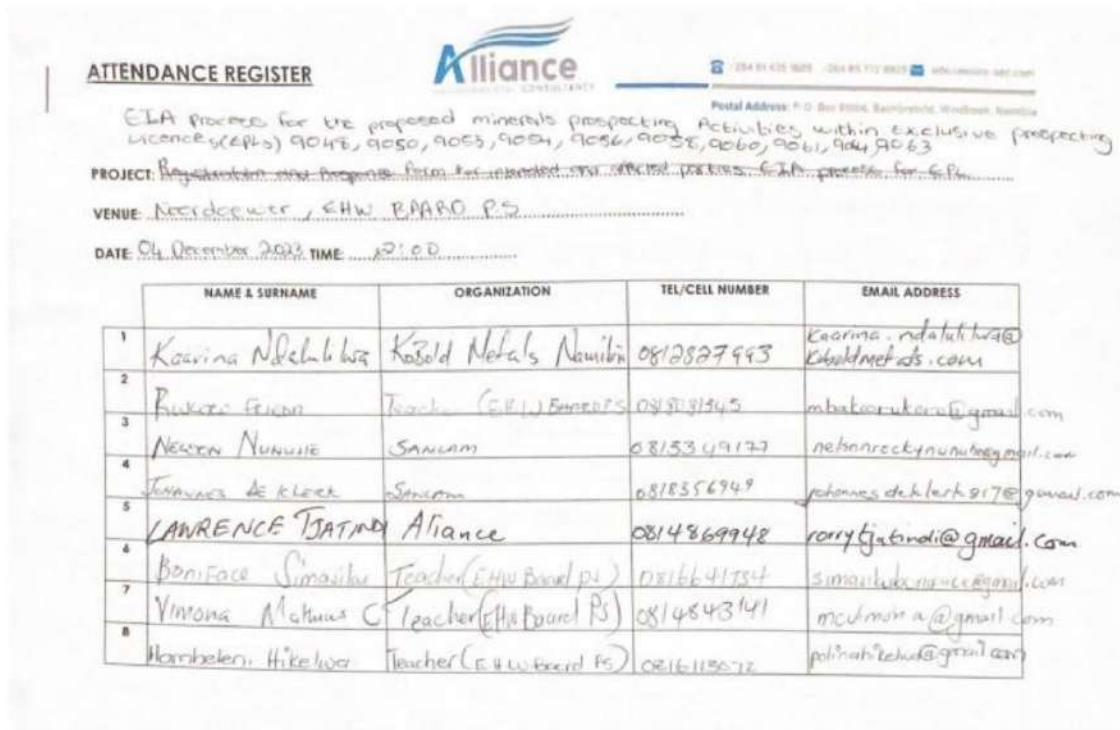 ATTENDANCE REGISTER
Alliance
CONSULTANCY
Postal Address: P.O. Box Windhoek, Namibia
EIA process for the proposed minerals prospecting Activities within Exclusive prospecting
Licences(EPLs) 9048, 9050, 9053, 9054, 9056, 9058, 9060, 9061, 9063
PROJECT: Registration and Response form for interested and affected parties: EIA process for EPL
VENUE: Noordoewer, EHW BAARD P.S
DATE: 04 December 2023 TIME: 12:00
NAME & SURNAME ORGANIZATION TEL/CELL NUMBER EMAIL ADDRESS
1 Kaarina Ndalulilwa KoBold Metals Namibia 0812827993 kaarina.ndalulilwa@
koboldmetals.com
2 Teacher (EHW Baard PS
3 NELSON NUNUHE SANLAM 0815349177 nelsonreckynunuhe@gmail.com
4 JOHANNES DE KLERK SANLAM 0818356949 johannesdeklerk817@gmail.com
5 LAWRENCE TJATINDI Aliance 0814869948 rorrytjatindi@gmail.com
6 Boniface Simasiku Teacher (EHW Baard PS) 0816641734
7 Vimona Mathews C Teacher (EHW Baard PS) 0814843141 mcvimona@gmail.com
8 Hambeleni Hikelwa Teacher (EHW Baard PS)